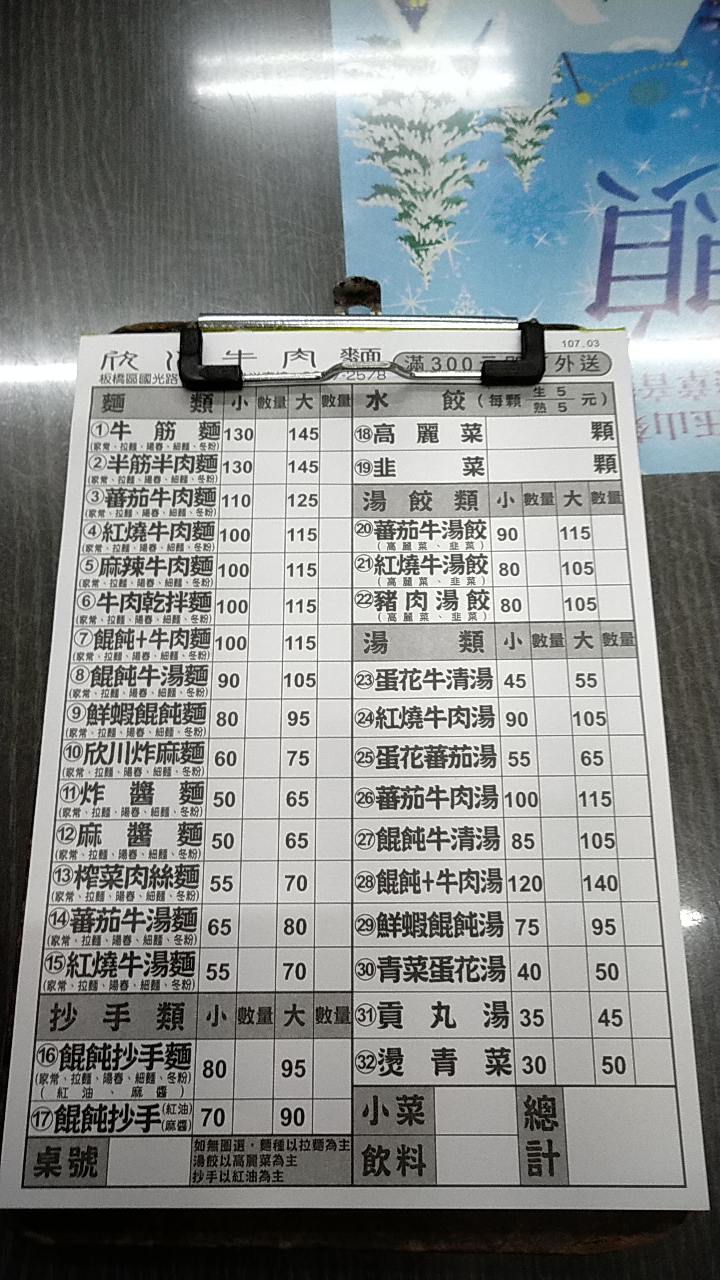 107.03
欣 牛肉麵
滿300元 外送
板橋區國光路 7-2578
麵類 小 數量 大 數量
①牛筋麵 130 145
(家常、拉麵、陽春、細麵、冬粉)
②半筋半肉麵 130 145
(家常、拉麵、陽春、細麵、冬粉)
③蕃茄牛肉麵 110 125
(家常、拉麵、陽春、細麵、冬粉)
④紅燒牛肉麵 100 115
(家常、拉麵、陽春、細麵、冬粉)
⑤麻辣牛肉麵 100 115
(家常、拉麵、陽春、細麵、冬粉)
⑥牛肉乾拌麵 100 115
(家常、拉麵、陽春、細麵、冬粉)
⑦餛飩+牛肉麵 100 115
(家常、拉麵、陽春、細麵、冬粉)
⑧餛飩牛湯麵 90 105
(家常、拉麵、陽春、細麵、冬粉)
⑨鮮蝦餛飩麵 80 95
(家常、拉麵、陽春、細麵、冬粉)
⑩欣川炸麻麵 60 75
(家常、拉麵、陽春、細麵、冬粉)
⑪炸醬麵 50 65
(家常、拉麵、陽春、細麵、冬粉)
⑫麻醬麵 50 65
(家常、拉麵、陽春、細麵、冬粉)
⑬榨菜肉絲麵 55 70
(家常、拉麵、陽春、細麵、冬粉)
⑭蕃茄牛湯麵 65 80
(家常、拉麵、陽春、細麵、冬粉)
⑮紅燒牛湯麵 55 70
(家常、拉麵、陽春、細麵、冬粉)
抄手類 小 數量 大 數量
⑯餛飩抄手麵 80 95
(家常、拉麵、陽春、細麵、冬粉)
(紅油、麻醬)
⑰餛飩抄手(紅油)(麻醬) 70 90
桌號
如無圈選，麵種以拉麵為主
湯餃以高麗菜為主
抄手以紅油為主
水餃(每顆 生5 熟5 元)
⑱高麗菜 顆
⑲韭菜 顆
湯餃類 小 數量 大 數量
⑳蕃茄牛湯餃 90 115
(高麗菜、韭菜)
㉑紅燒牛湯餃 80 105
(高麗菜、韭菜)
㉒豬肉湯餃 80 105
(高麗菜、韭菜)
湯類 小 數量 大 數量
㉓蛋花牛清湯 45 55
㉔紅燒牛肉湯 90 105
㉕蛋花蕃茄湯 55 65
㉖蕃茄牛肉湯 100 115
㉗餛飩牛清湯 85 105
㉘餛飩+牛肉湯 120 140
㉙鮮蝦餛飩湯 75 95
㉚青菜蛋花湯 40 50
㉛貢丸湯 35 45
㉜燙青菜 30 50
小菜
飲料
總計